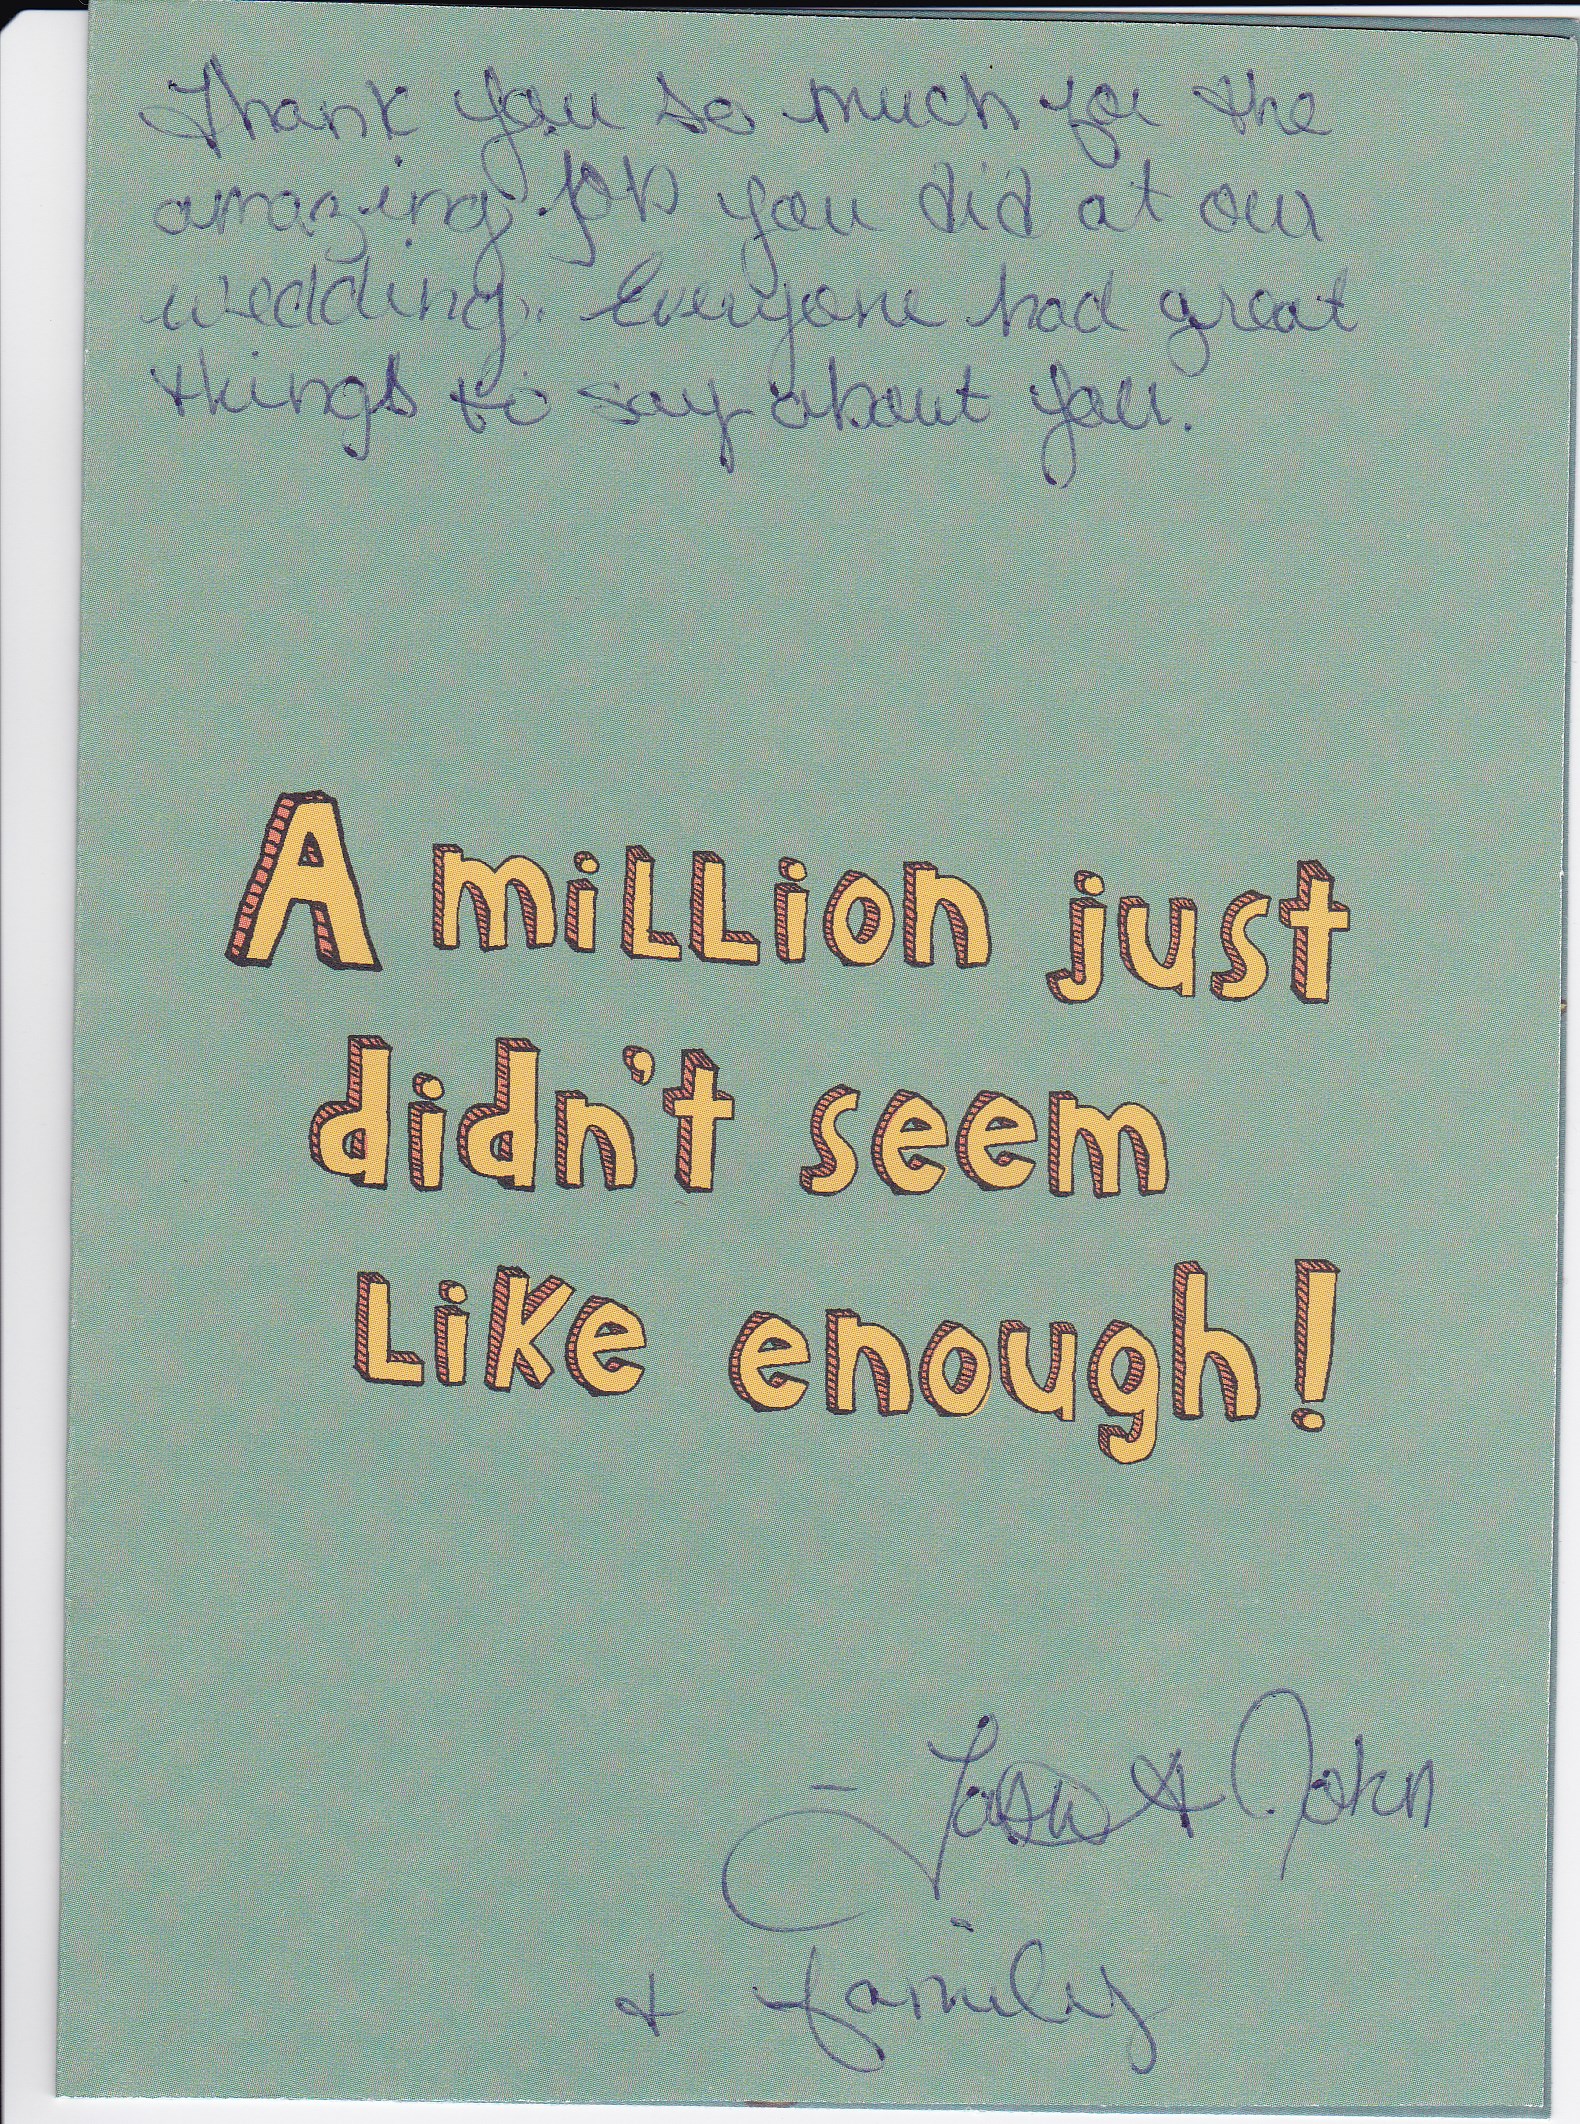 Thank you so much for the
amazing job you did at our
wedding. Everyone had great
things to say about you.
A million just
didn't seem
Like enough!
& John
+ family